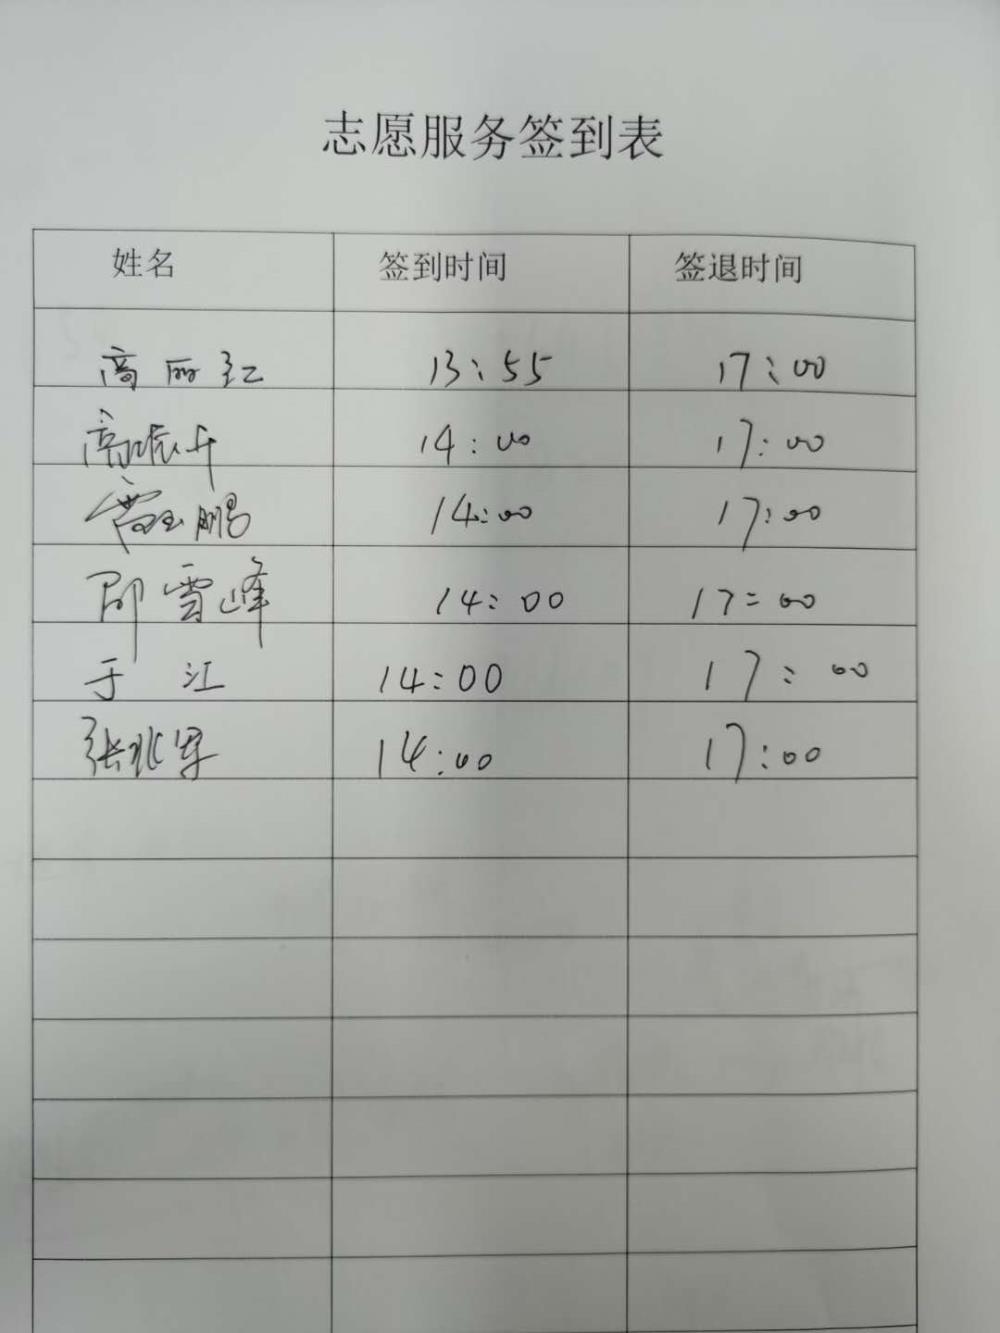 志愿服务签到表
姓名 签到时间 签退时间
高丽红 13:55 17:00
高振升 14:00 17:00
高玉鹏 14:00 17:00
邵雪峰 14:00 17:00
于江 14:00 17:00
张兆军 14:00 17:00